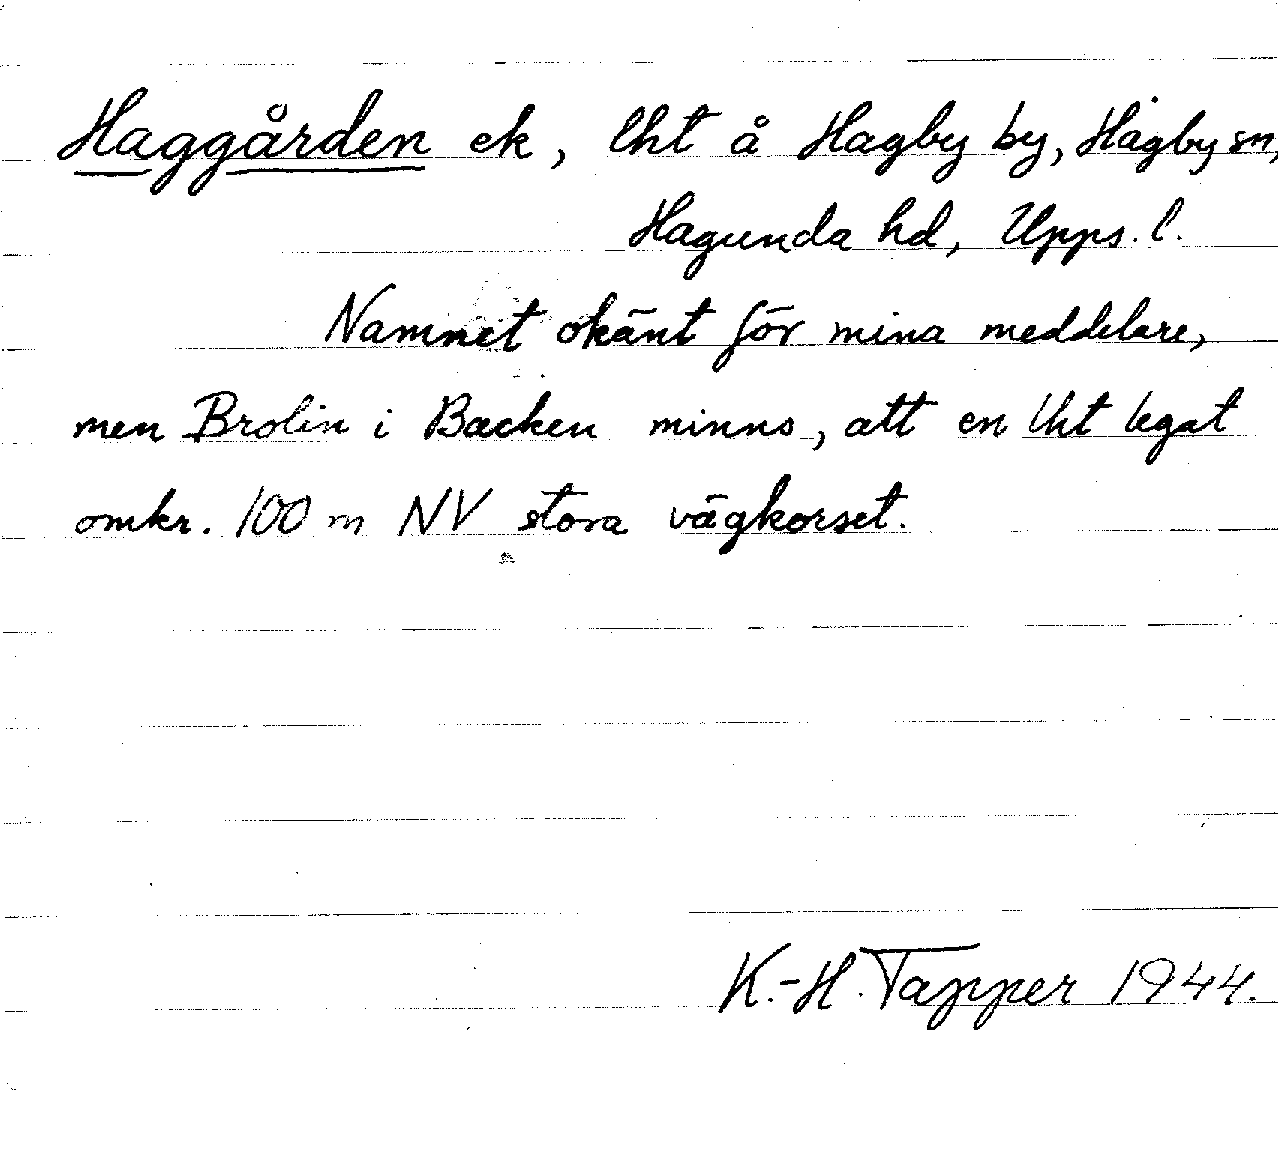 Haggården ek, lht å Hagby by, Hagby sn,
Hagunda hd, Upps. l.
Namnet okänt för mina meddelare,
men Brolin i Backen minns, att en lht legat
omkr. 100 m NV stora vägkorset.
K.-H. Tapper 1944.